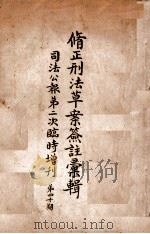 脩正刑法草案簽註彙輯
司法公報第二次臨時增刊
第四十期
www.toopoo.com